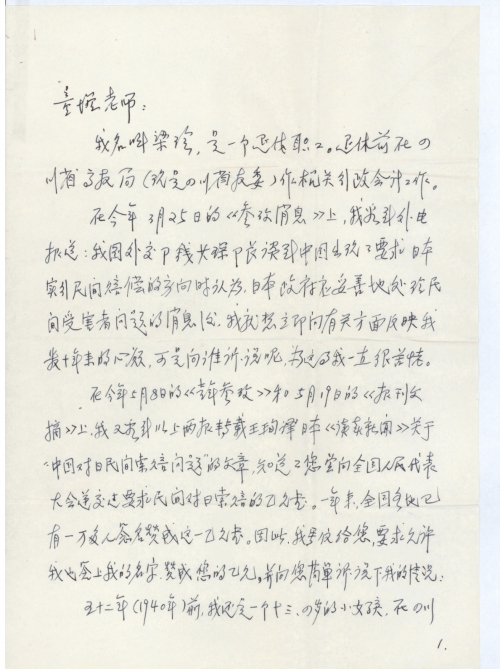 童增老师：
我名叫梁玲，是一个退休职工。退休前在四
川省高教局（现是四川省教委）作机关行政会计工作。
在今年3月25日的《参考消息》上，我看到外电
报道：我国外交部钱其琛部长谈到中国出现了要求日本
实行民间赔偿的方向时认为，日本政府应妥善地处理民
间受害者问题的消息后，我就想立即向有关方面反映我
数十年来的心愿，可是向谁诉说呢，为这事我一直很苦恼。
在今年5月8日的《青年参考》和5月19日的《报刊文
摘》上，我又看到以上两报转载王珣译日本《读卖新闻》关于
"中国对日民间索赔问题"的文章，知道了您曾向全国人民代表
大会递交过要求民间对日索赔的的意见书。一年来，全国各地已
有一万多人签名赞成这一意见书。因此，我写信给您，要求允许
我也签上我的名字，赞成您的意见，并向您简单诉说下我的情况：
五十二年（1940年）前，我还是一个十三、四岁的小女孩，在四川
1.